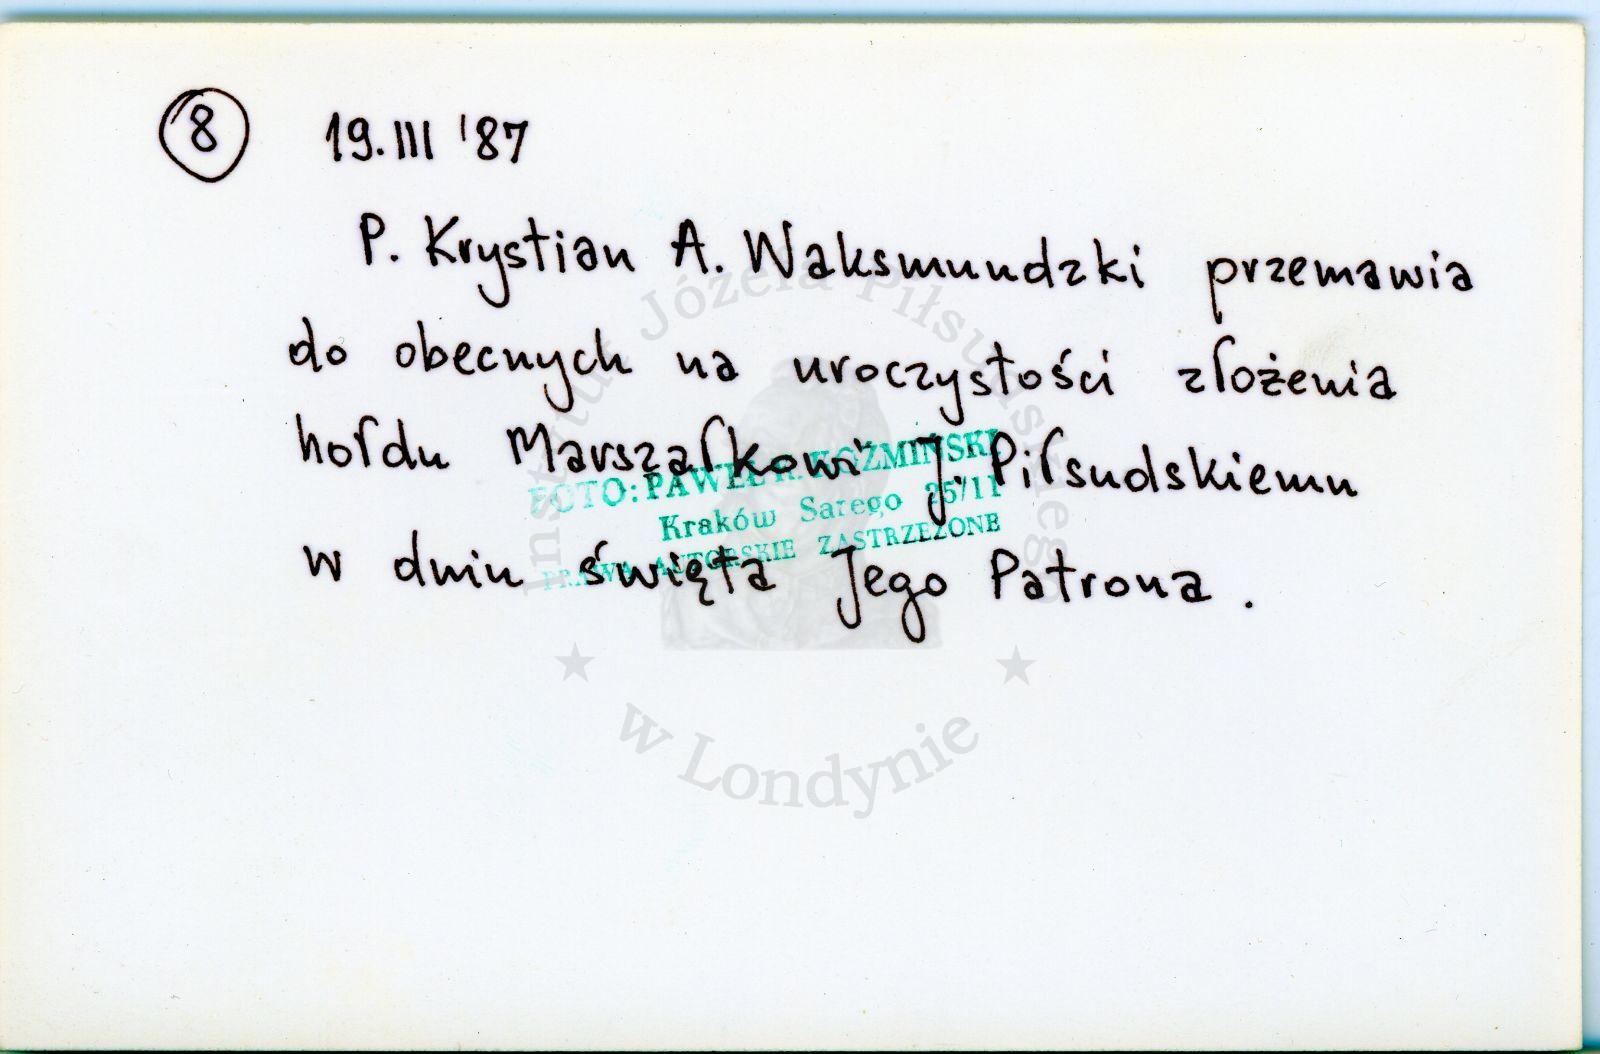 8 19.III '87
P. Krystian A. Waksmundzki przemawia
do obecnych na uroczystości złożenia
hołdu Marszałkowi J. Piłsudskiemu
w dniu święta Jego Patrona.
FOTO: PAWEŁ R. KOŹMIŃSKI
Kraków Sarego 25/11
PRAWA AUTORSKIE ZASTRZEŻONE
Instytut Józefa Piłsudskiego
w Londynie